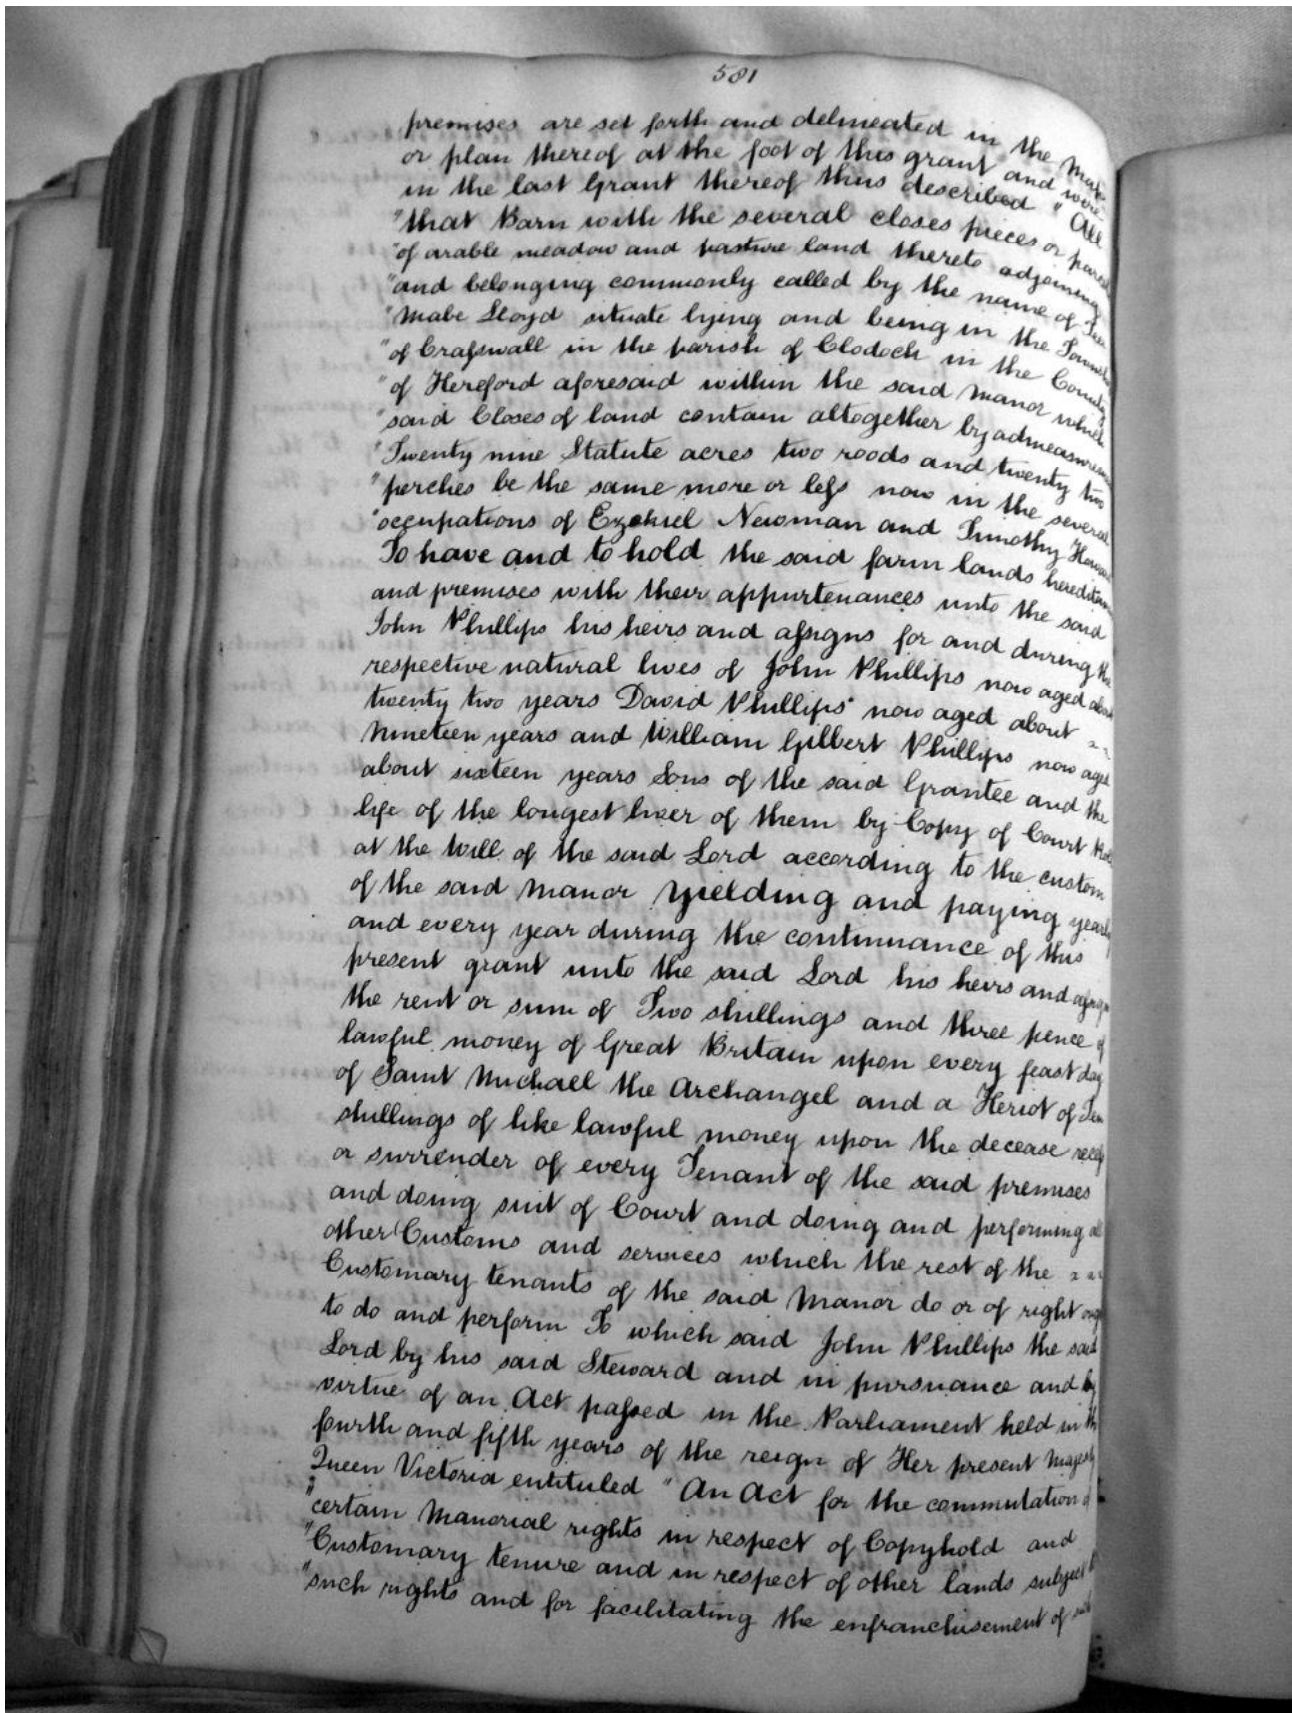 581
premises are set forth and delineated in the Map
or plan thereof at the foot of this grant and were
in the last Grant thereof thus described "All
"that Barn with the several closes pieces or parcels
"of arable meadow and pasture land thereto adjoining
"and belonging commonly called by the name of
"Mabe Lloyd situate lying and being in the Township
"of Crasswall in the parish of Clodock in the County
"of Hereford aforesaid within the said Manor which
"said Closes of land contain altogether by admeasurement
"Twenty nine Statute acres two roods and twenty two
"perches be the same more or less now in the several
"occupations of Ezekiel Newman and Timothy
To have and to hold the said farm lands hereditaments
and premises with their appurtenances unto the said
John Phillips his heirs and assigns for and during the
respective natural lives of John Phillips now aged about
twenty two years David Phillips now aged about
Nineteen years and William Gilbert Phillips now aged
about sixteen years Sons of the said Grantee and the
life of the longest liver of them by Copy of Court Roll
at the Will of the said Lord according to the custom
of the said Manor yielding and paying yearly
and every year during the continuance of this
present grant unto the said Lord his heirs and assigns
the rent or sum of Two shillings and three pence of
lawful money of Great Britain upon every feast day
of Saint Michael the Archangel and a Heriot of Ten
shillings of like lawful money upon the decease
or surrender of every Tenant of the said premises
and doing suit of Court and doing and performing all
other Customs and services which the rest of the
Customary tenants of the said Manor do or of right ought
to do and perform To which said John Phillips the said
Lord by his said Steward and in pursuance and by
virtue of an Act passed in the Parliament held in the
fourth and fifth years of the reign of Her present Majesty
Queen Victoria entituled "An Act for the commutation of
"certain Manorial rights in respect of Copyhold and
"Customary tenure and in respect of other lands subject to
"such rights and for facilitating the enfranchisement of such